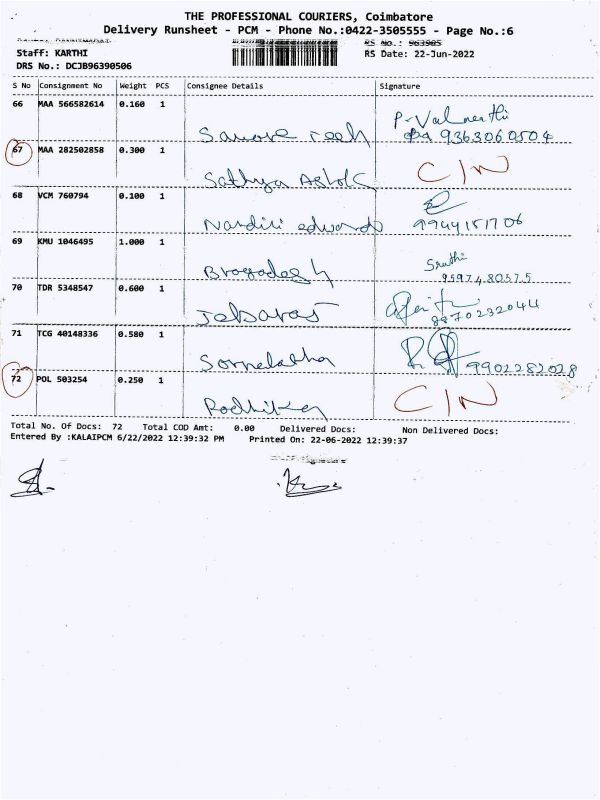 THE PROFESSIONAL COURIERS, Coimbatore
Delivery Runsheet - PCM - Phone No.:0422-3505555 - Page No.:6
RS No.: 963905
Staff: KARTHI
RS Date: 22-Jun-2022
DRS No.: DCJB96390506
S No Consignment No Weight PCS Consignee Details Signature
66 MAA 566582614 0.160 1
9363060504
67 MAA 282502858 0.300 1 C/N
Sathya Ashok
68 VCM 760794 0.100 1
Nandini edwards 9944151706
69 KMU 1046495 1.000 1 Sruthi
Bragadesh 9597480575
70 TDR 5348547 0.600 1
Jebaraj 8870232044
71 TCG 40148336 0.580 1
Sornelatha 9902282028
72 POL 503254 0.250 1 C/N
Radhika
Total No. Of Docs: 72 Total COD Amt: 0.00 Delivered Docs: Non Delivered Docs:
Entered By :KALAIPCM 6/22/2022 12:39:32 PM Printed On: 22-06-2022 12:39:37